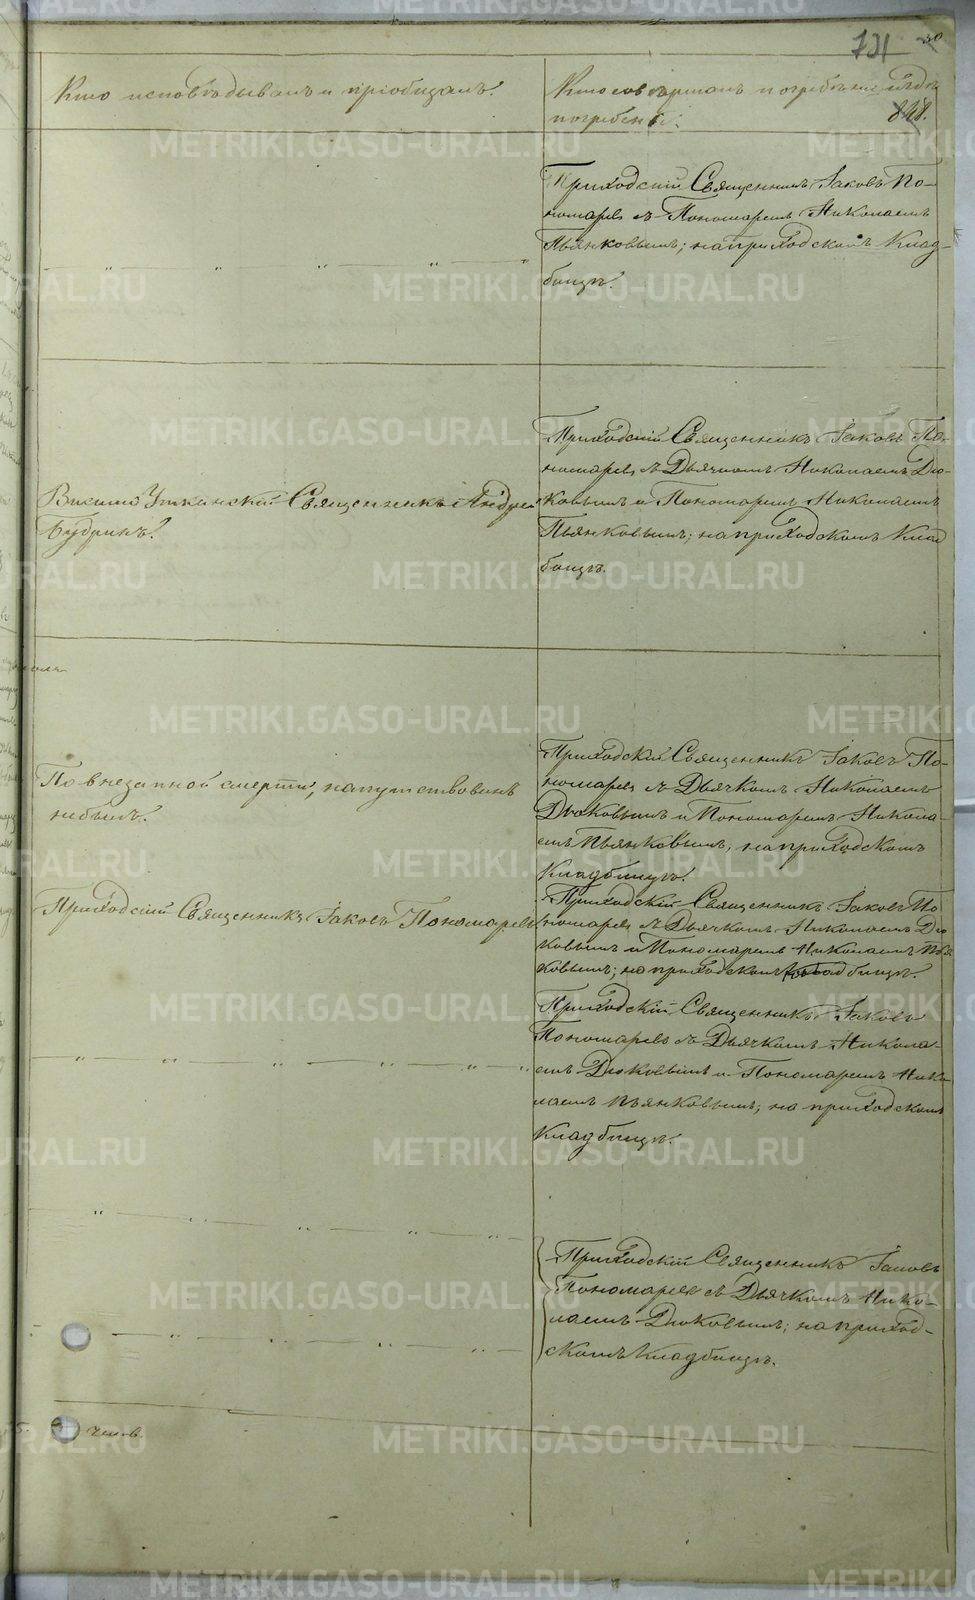 731
30
Кто исповѣдывалъ и пріобщалъ.
Кто совершалъ погребеніе и гдѣ
погребены.
848.
Приходскій Священникъ Іаковъ По-
номаревъ съ Пономаремъ Николаемъ
Пьянковымъ; на приходскомъ Клад-
бищѣ.
Висимо Уткинскій Священникъ Андрей
Будринъ.
Приходскій Священникъ Іаковъ По-
номаревъ съ Дьячкомъ Николаемъ Дю-
ковымъ и Пономаремъ Николаемъ
Пьянковымъ; на приходскомъ Клад
бищѣ.
По внезапной смерти, напутствованъ
небылъ.
Приходскій Священникъ Іаковъ По-
номаревъ съ Дьячкомъ Николаемъ
Дюковымъ и Пономаремъ Никола-
емъ Пьянковымъ; на приходскомъ
Кладбищѣ.
Приходскій Священникъ Іаковъ Пономаревъ
Приходскій Священникъ Іаковъ По
номаревъ съ Дьячкомъ Николаемъ Дю
ковымъ и Пономаремъ Николаемъ Пьян
ковымъ; на приходскомъ кладбищѣ.
Приходскій Священникъ Іаковъ
Пономаревъ съ Дьячкомъ Никола-
емъ Дюковымъ и Пономаремъ Нико
лаемъ Пьянковымъ; на приходскомъ
Кладбищѣ.
Приходскій Священникъ Іаковъ
Пономаревъ съ Дьячкомъ Нико-
лаемъ Дюковымъ; на приход-
скомъ Кладбищѣ.
челов.
METRIKI.GASO-URAL.RU